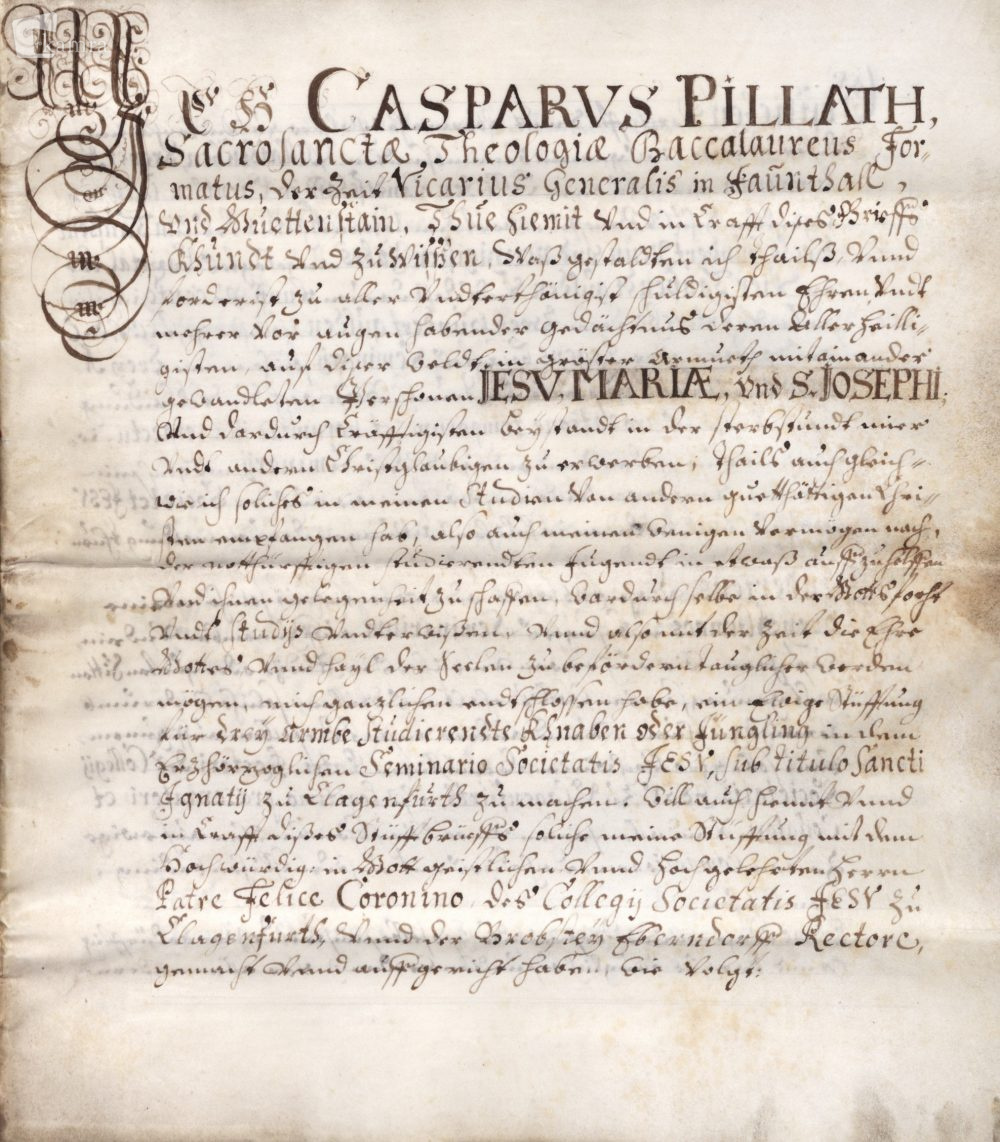 ICH CASPARVS PILLATH,
Sacrosanctæ Theologiæ Baccalaureus For-
matus, der Zeit Vicarius Generalis in Jaunthall,
Vnd Guettenstain, Thue hiemit Vnd in Crafft dises Brieffs
Khundt Vnd Zu Wissen, Waß gestaldten ich thailß Vnnd
forderist zu aller Vndterthönigist huldigisten Ehren Vndt
mehrer Vor augen habender gedächtnus deren Allerheilli-
gisten, auf diser Veldt in gröster Armueth mitainander
gewandleten Persohnen JESV, MARIÆ, Vnd S. JOSEPHI,
Vnd dardurch Cräfftigisten beystandt in der sterbstundt mier
Vndt andern Christglaubigen zu erwerben; thails auch gleich-
wie ich solches in meinen Studien Von andern guetthättigen Chri-
sten empfangen hab, also auch meinen wenigen Vermögen nach,
der notthürfftigen studierendten Jugendt in etwaß auffzuhelffen
Vnd ihnen gelegenheit zu schaffen, wardurch selbe in der Gottsforht
Vndt Studijs Vndterwisen, Vnnd also mit der Zeit die Ehre
Gottes Vnnd hayl der Seelen zu befördern tauglicher werden
mögen, mich gänzlichen endtschlossen habe, ein Ewige Stüfftung
für drey Armbe Studierendte Khnaben oder Jüngling in dem
Erzhörzoglichen Seminario Societatis JESV, sub titulo Sancti
Ignatij zu Clagenfurth zu machen. Will auch hiemit Vnnd
in Crafft dißes Stüfftbrieffs solche meine Stüfftung mit dem
Hochwürdig: in Gott geistlichen Vnnd hochgelehrten Herrn
Patre Felice Coronino des Collegij Societatis JESV zu
Clagenfurth, Vnnd der Brobstey Eberndorff Rectore,
gemacht Vnnd auffgericht haben, wie Volgt: